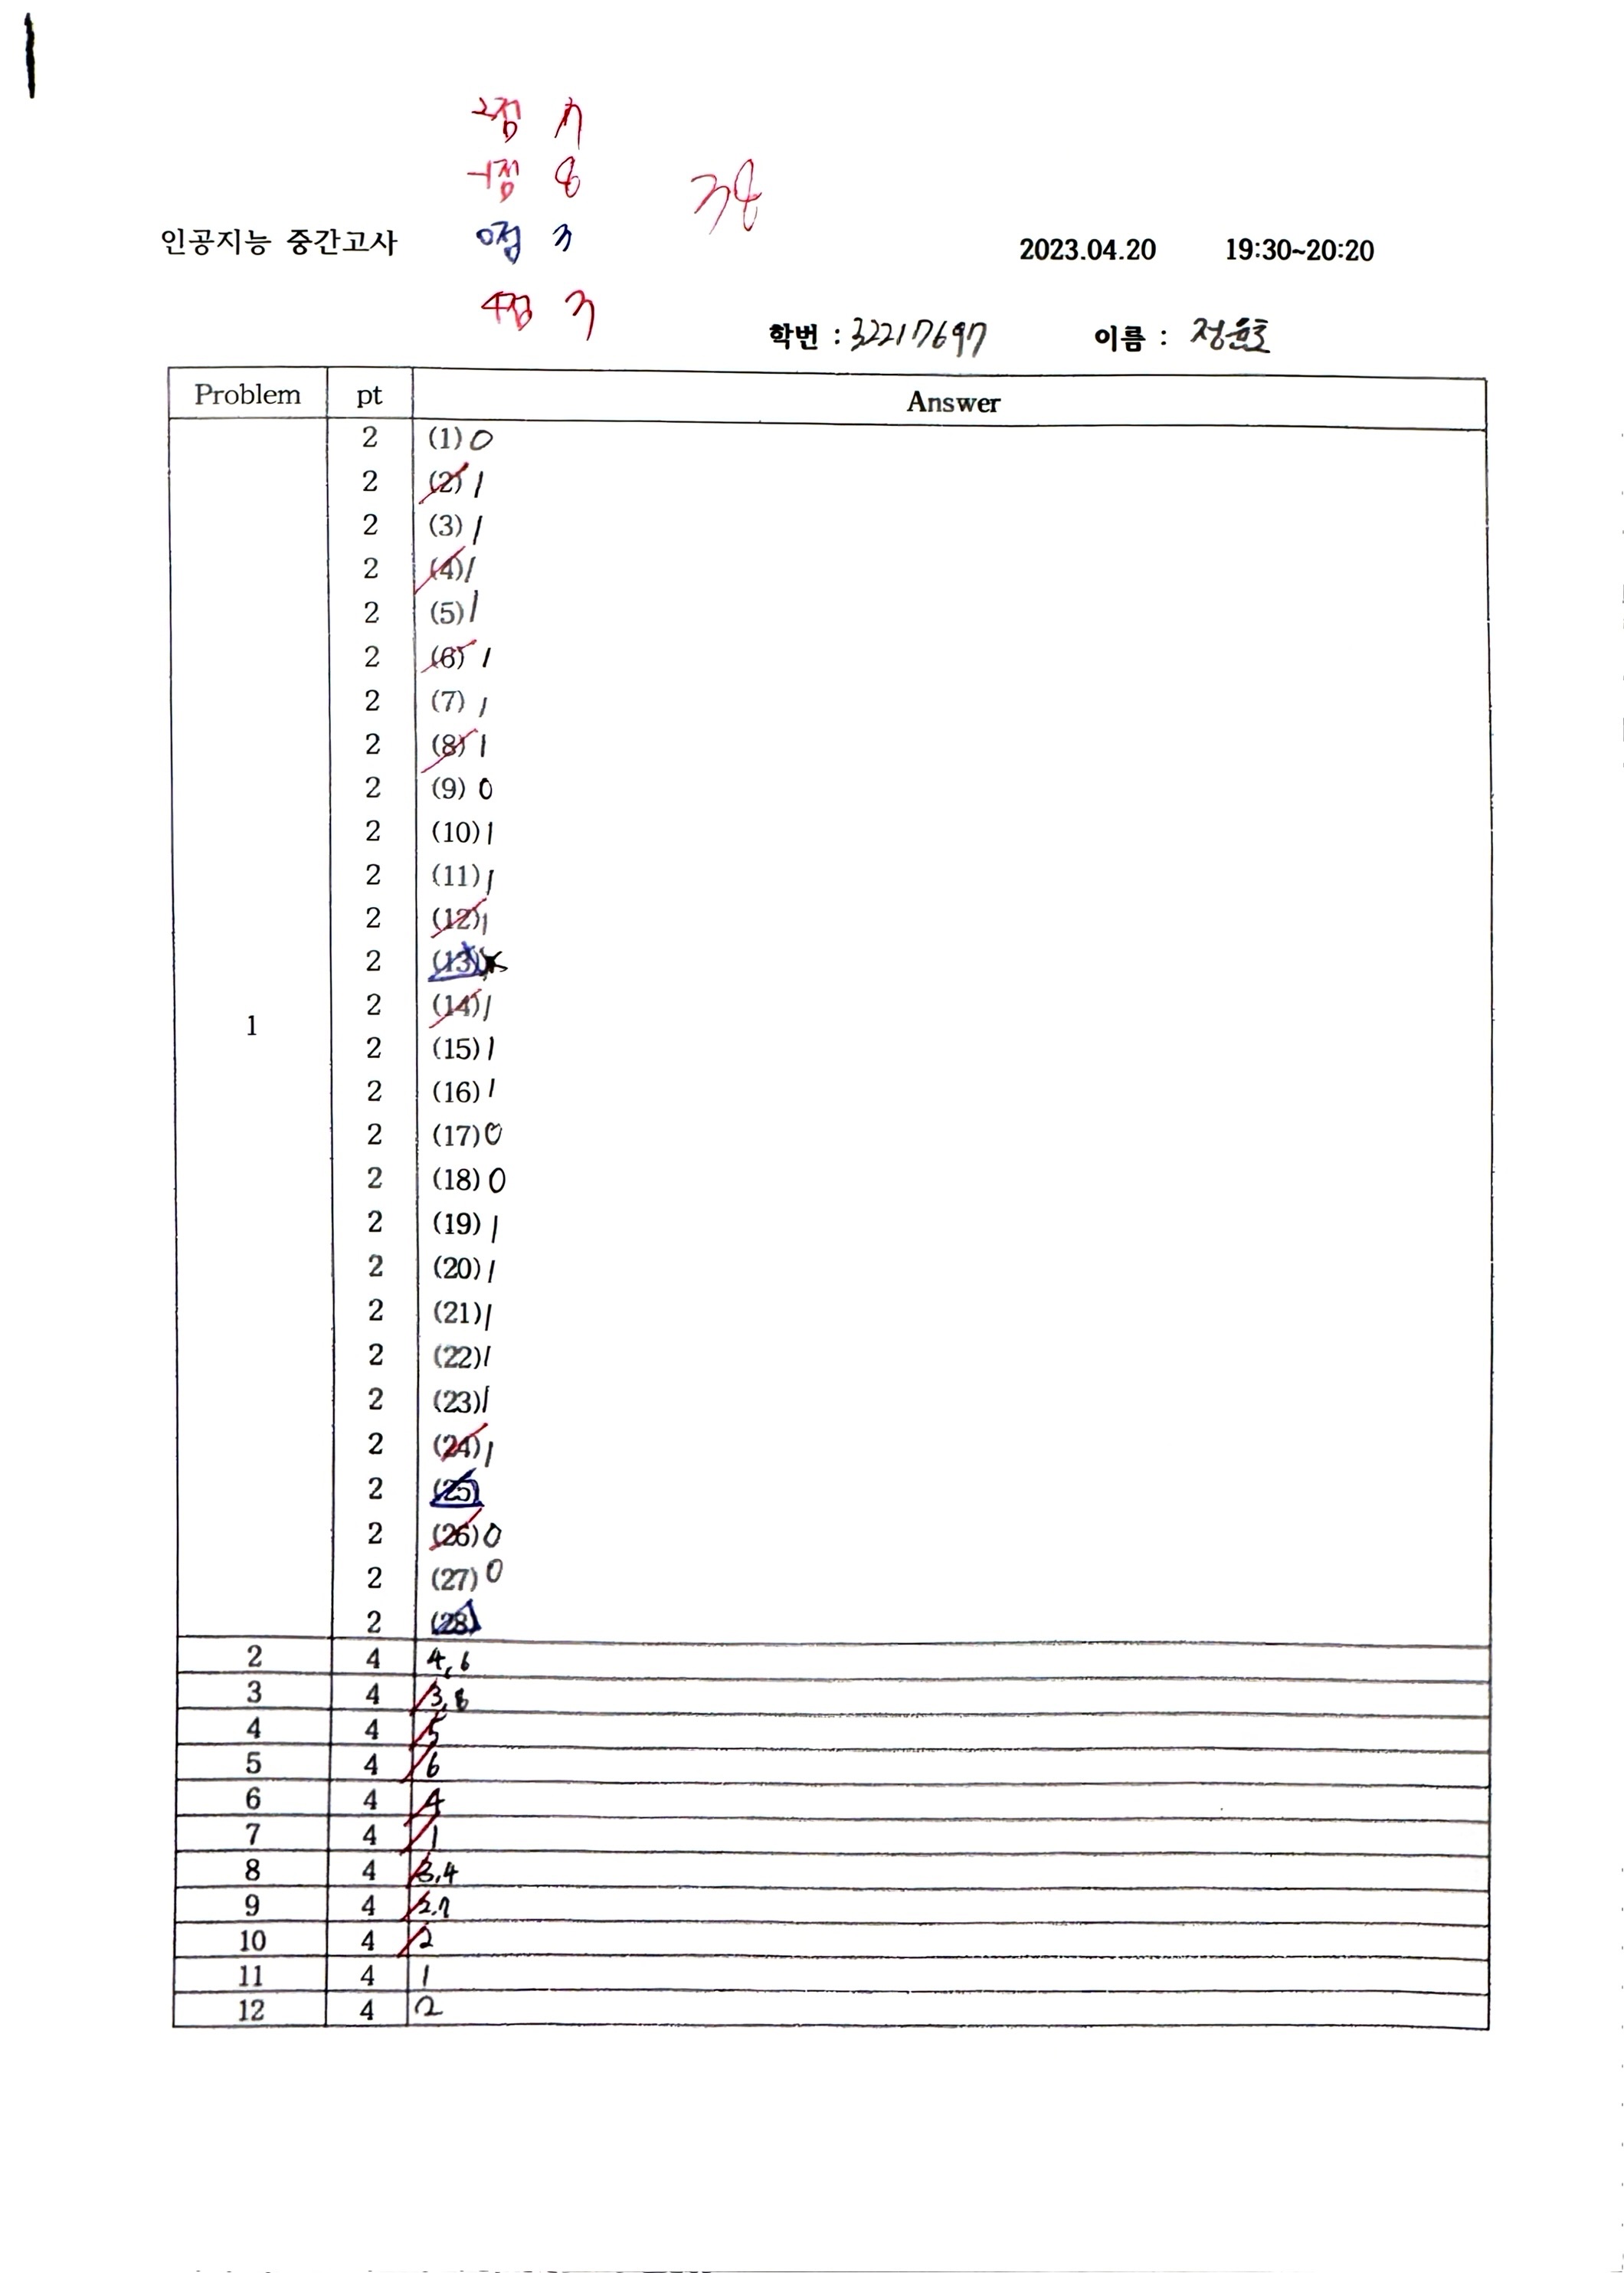 2점 17
-1점 8
38
인공지능 중간고사 0점 3 2023.04.20 19:30~20:20
4점 3
학번 : 32217697 이름 : 정윤호
Problem pt Answer
2 (1) 0
2 (2) 1
2 (3) 1
2 (4) 1
2 (5) 1
2 (6) 1
2 (7) 1
2 (8) 1
2 (9) 0
2 (10) 1
2 (11) 1
2 (12) 1
2 (13)
2 (14) 1
1
2 (15) 1
2 (16) 1
2 (17) 0
2 (18) 0
2 (19) 1
2 (20) 1
2 (21) 1
2 (22) 1
2 (23) 1
2 (24) 1
2 (25)
2 (26) 0
2 (27) 0
2 (28)
2 4 4,6
3 4 3,8
4 4 5
5 4 6
6 4 4
7 4 1
8 4 3,4
9 4 2,7
10 4 2
11 4 1
12 4 2